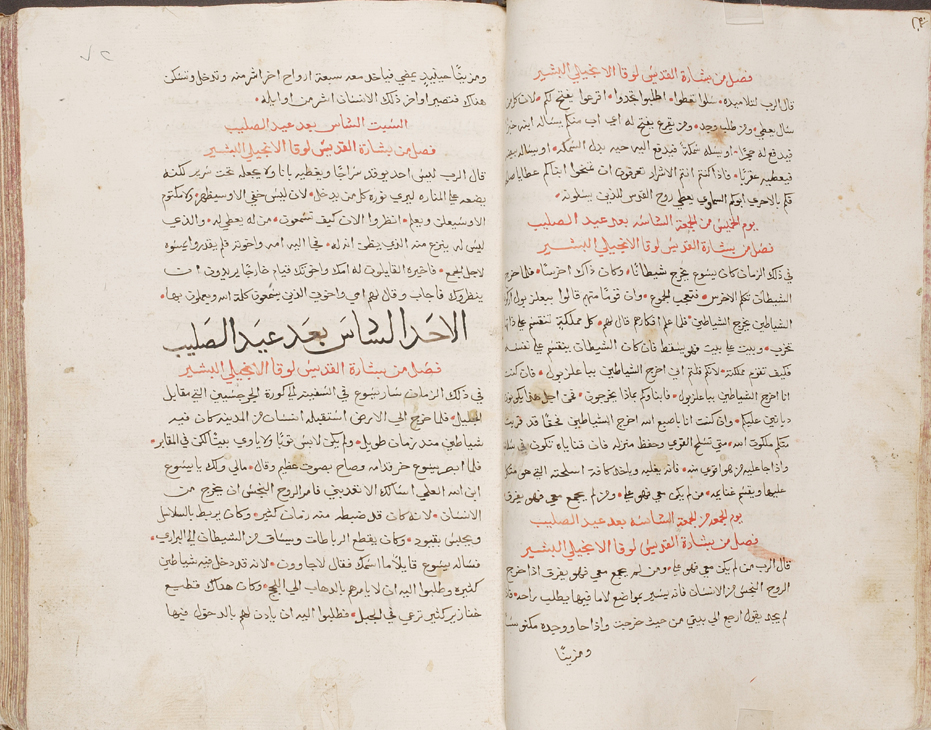 فصل من بشارة القديس لوقا الانجيلي البشير
قال الرب لتلاميذه • سلوا تعطوا • اطلبوا تجدوا • اقرعوا يفتح لكم • لان كل من
سال يعطي • ومن طلب وجد • ومن يقرع يفتح له اي اب منكم يساله ابنه خبزا
فيدفع له حجرًا • او يسله سمكة فيدفع اليه حيه بدل السمكه • او يساله بيضه
فيعطيه عقربًا • فاذا كنتم انتم الاشرار تعرفون ان تمنحوا ابناكم عطايا صالحه
فكم بالاحري ابوكم السماوي يعطي روح القدوس للذين يسلونه •
يوم الخميس من الجمعة السادسه بعد عيد الصليب
فصل من بشارة القديس لوقا الانجيلي البشير
في ذلك الزمان كان يسوع يخرج شيطانًا • وكان ذاك اخرسًا • فلما خرج
الشيطان تكلم الاخرس • فتعجب الجموع • وان قومًا منهم قالوا ببعلزبول اركون
الشياطين يخرج الشياطين • فلما علم افكارهم قال لهم • كل مملكة تنقسم علي ذاتها
تخرب • وبيت علي بيت فهو يسقط فان كان الشيطان ينقسم علي نفسه
فكيف تقوم مملكته • لانكم قلتم اني اخرج الشياطين بباعلزبول • فان كنت
انا اخرج الشياطين بباعلزبول • فابناوكم بماذا يخرجون • فمن اجل هذا يكونون
ديانين عليكم • وان كنت انا باصبع الله اخرج الشياطين فحقًا قد قربت
منكم ملكوت الله • متي تسلح القوي وحفظ منزله فان قناياه تكون في سلامه
واذا جا عليه من هو اقوي منه • فانه يغلبه وياخذ كافة اسلحته التي هو متكل
عليها ويقسم غنايمه • من لم يكن معي فهو علي • ومن لم يجمع معي فهو يفرق
يوم الجمعه من الجمعة السادسه بعد عيد الصليب
فصل من بشارة القديس لوقا الانجيلي البشير
قال الرب من لم يكن معي فهو علي • ومن لم يجمع معي فهو يفرق اذا خرج
الروح النجس من الانسان فانه يسير بمواضع لا ما فيها يطلب راحه • فاذا
لم يجد يقول ارجع الي بيتي من حيث خرجت واذا جا ووجده مكنوسًا
ومزينًا
ومزينًا حينيذٍ يمضي فياخذ معه سبعة ارواح اخر اشر منه وتدخل وتسكن
هناك فتصير اواخر ذلك الانسان اشر من اوايله •
السبت السادس بعد عيد الصليب
فصل من بشارة القديس لوقا الانجيلي البشير
قال الرب ليس احد يوقد سراجًا ويغطيه بانا ولا يجعله تحت سرير لكنه
يضعه علي المناره ليري نوره كل من يدخل • لان ليس خفي الا وسيظهر • ولا مكتوم
الا وسيعلن ويعلم • انظروا الان كيف تسمعون • من له يعطي له • والذي
ليس له ينزع منه الذي يظن انه له • فجا اليه امه واخوته فلم يقدروا يسوه
لاجل الجمع • فاخبره القايلون له امك واخوتك قيام خارجًا يريدون ان
ينظروك فاجاب وقال لهم امي واخوتي الذين يسمعون كلمة الله ويعملون بها •
الاحد السادس بعد عيد الصليب
فصل من بشارة القديس لوقا الانجيلي البشير
في ذلك الزمان سار يسوع في السفينه الي كورة الجرجسيين التي مقابل
الجليل • فلما خرج الي الارض استقبله انسان من المدينه كان فيه
شياطين منذ زمان طويل • ولم يكن لابس ثوبًا ولا ياوي بيتًا لكن في المقابر •
فلما ابصر يسوع خر قدامه وصاح بصوت عظيم وقال • مالي ولك يا يسوع
ابن الله العلي اسالك الا تعذبني فامر الروح النجس ان يخرج من
الانسان • لانه كان قد ضبطه منذ زمان كثير • وكان يربط بالسلاسل
ويحبس بقيود • وكان يقطع الرباطات ويساق من الشيطان الي البراري •
فساله يسوع قايلًا ما اسمك فقال لاجاوون • لانه قد دخل فيه شياطين
كثيره وطلبوا اليه ان لا يامرهم بالذهاب الي اللج • وكان هناك قطيع
خنازير كثير ترعي في الجبل • فطلبوا اليه ان ياذن لهم بالدخول فيها